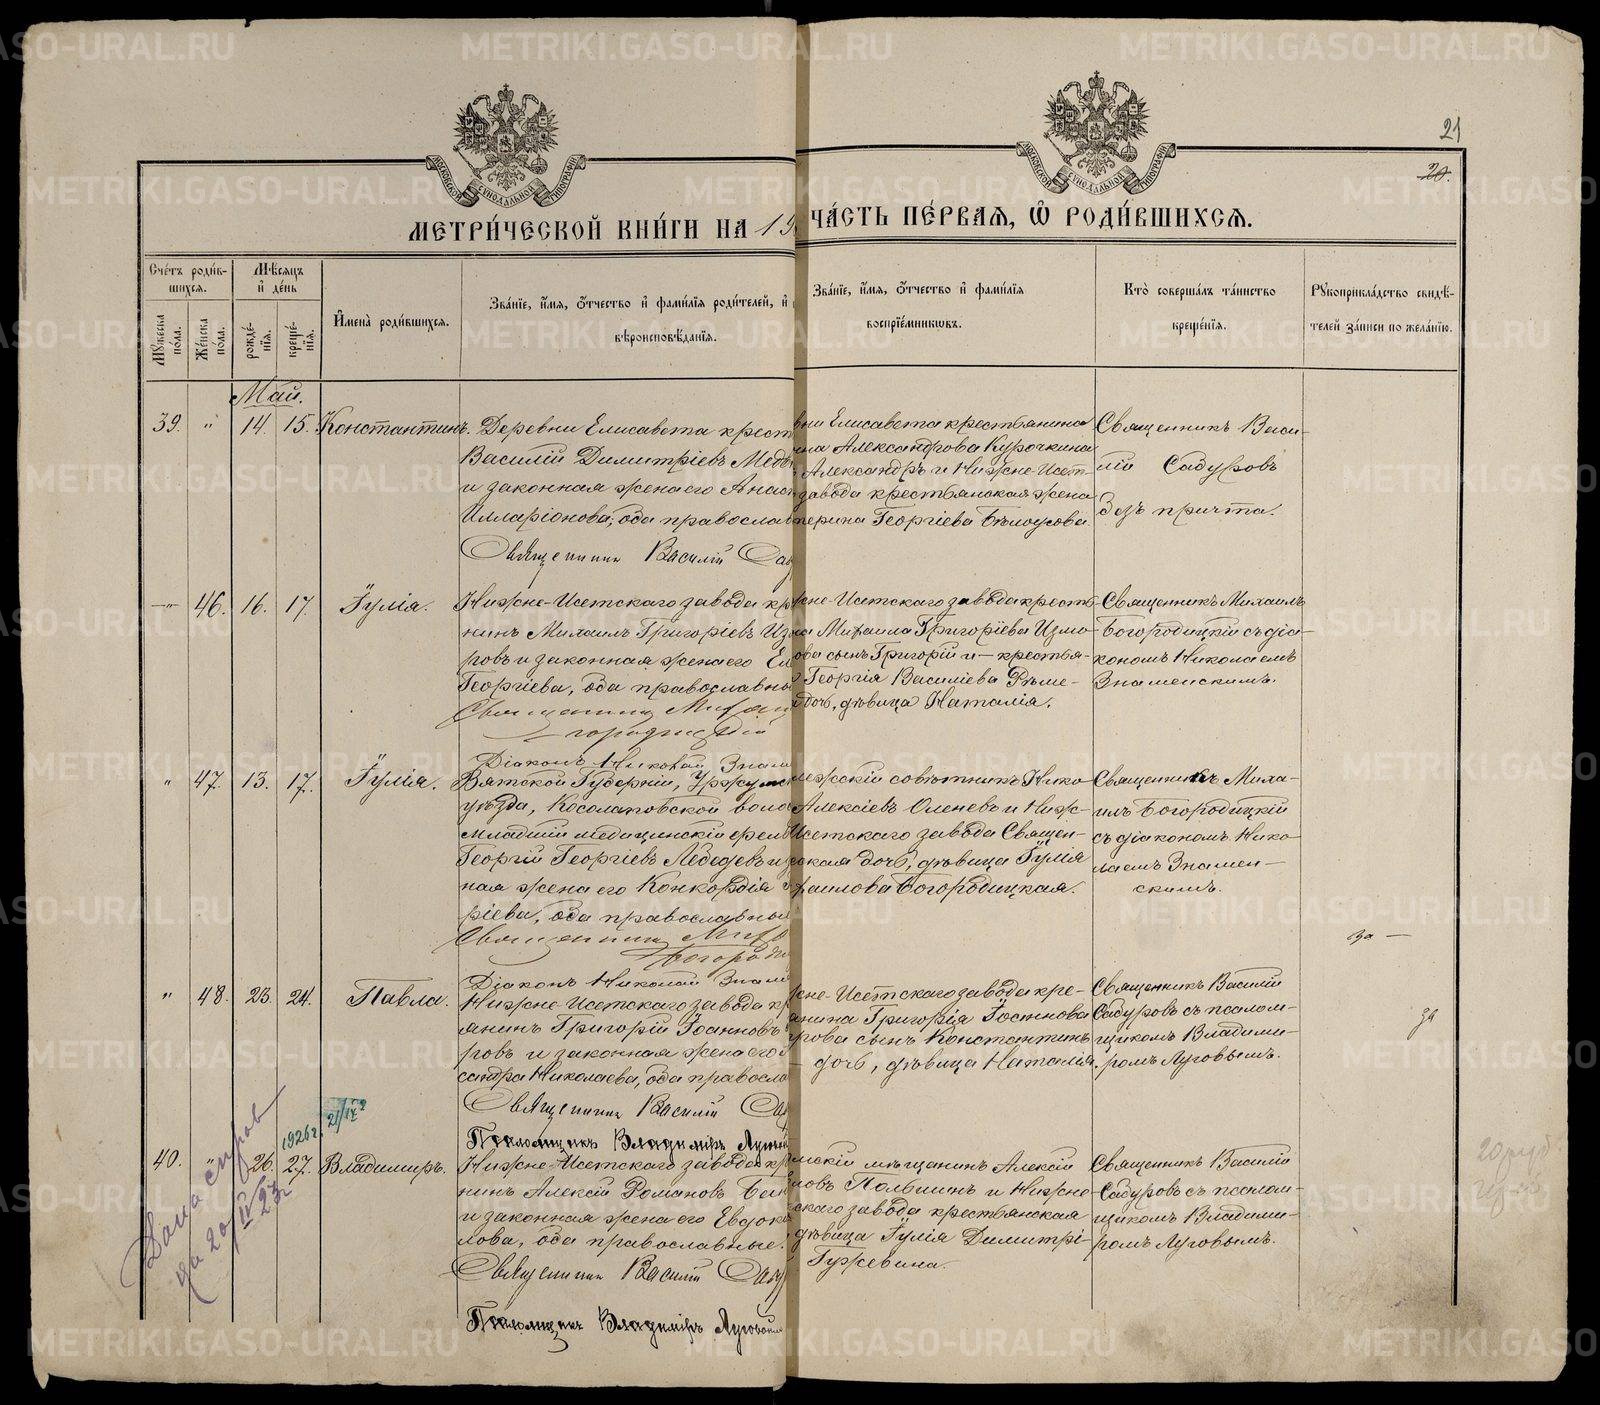 21
20.
МЕТРИ́ЧЕСКОЙ КНИ́ГИ НА 19
ЧА́СТЬ ПЕ́РВАЯ, Ѽ РОДИ́ВШИХСЯ.
Сче́тъ роди́в-
шихся.
Мѣ́сяцъ
и҆ де́нь
Мꙋ́жеска
по́ла.
Же́нска
по́ла.
рожде́-
нїя.
креще́-
нїя.
И҆мена̀ роди́вшихся.
Зва́нїе, и҆́мя, ѻ҆́тчество и҆ фами́лїя роди́телей, и҆
вѣроисповѣ́данїя.
Зва́нїе, и҆́мя, ѻ҆́тчество и҆ фами́лїя
воспрїе́мниковъ.
Кто̀ соверша́лъ та́инство
креще́нїя.
Рꙋкоприкла́дство свидѣ́-
телей за́писи по жела́нїю.
Май.
39. " 14. 15. Константинъ.
Деревни Елисавета крест
Василій Димитріевъ Медв
и законная жена его Анас
Илларіонова, оба православ
Священник Василій Сад
вни Елисавета крестьянина
на Александрова Курочкина
Александръ и Нижне-Исет-
завода крестьянская жена
терина Георгіева Бѣлоусова
Священникъ Васи-
лій Садуровъ
безъ причта.
—"— 46. 16. 17. Іулія.
Нижне-Исетскаго завода кр
нинъ Михаилъ Григоріевъ Изм
ровъ и законная жена его Ел
Георгіева, оба православны
Священник Миха
городицкій
Діаконъ Николай Знам
жне-Исетскаго завода кресть-
на Михаила Григоріева Измо-
ова сынъ Григорій и — крестья-
Георгія Василіева
дочь, дѣвица Наталія.
Священникъ Михаилъ
Богородицкій съ діа-
кономъ Николаемъ
Знаменскимъ.
" 47. 13. 17. Іулія.
Вятской Губерніи, Уржумс
уѣзда, Косолаповской воло
младшій медицинскій фель
Георгій Георгіевъ Лебедевъ и з
ная жена его Конкордія
ріева, оба православны
Священник Миха
Богороди
Діаконъ Николай Знам
совѣтникъ Нико-
Алексіевъ Оленевъ и Ниж-
Исетскаго завода Священ-
ская дочь, дѣвица Іулія
хаилова Богородицкая.
Священникъ Миха-
илъ Богородицкій
съ діакономъ Нико-
лаемъ Знамен-
скимъ.
за —
" 48. 23. 24. Павла.
Нижне-Исетскаго завода кр
янинъ Григорій Іоанновъ
ровъ и законная жена его
сандра Николаева, оба правосла
Священник Василій Сад
Псаломщикъ Владиміръ Лугов
жне-Исетскаго завода кре-
янина Григорія Іоаннова
рова сынъ Константинъ
— дочь, дѣвица Наталія.
Священникъ Василій
Садуровъ съ псалом-
щикомъ Владими-
ромъ Луговымъ.
за
1926 г. 21/IV
40. " 26. 27. Владимиръ.
Нижне-Исетскаго завода кр
нинъ Алексій Романовъ Бел
и законная жена его Евдок
лова, оба православные.
Священник Василій Саду
Псаломщикъ Владиміръ Луговой
мскій мѣщанинъ Алексій
и Нижне
скаго завода крестьянская
дѣвица Іулія Димитрі-
Гужевина.
Священникъ Василій
Садуровъ съ псалом-
щикомъ Владими-
ромъ Луговымъ.
20 руб
Дана справ